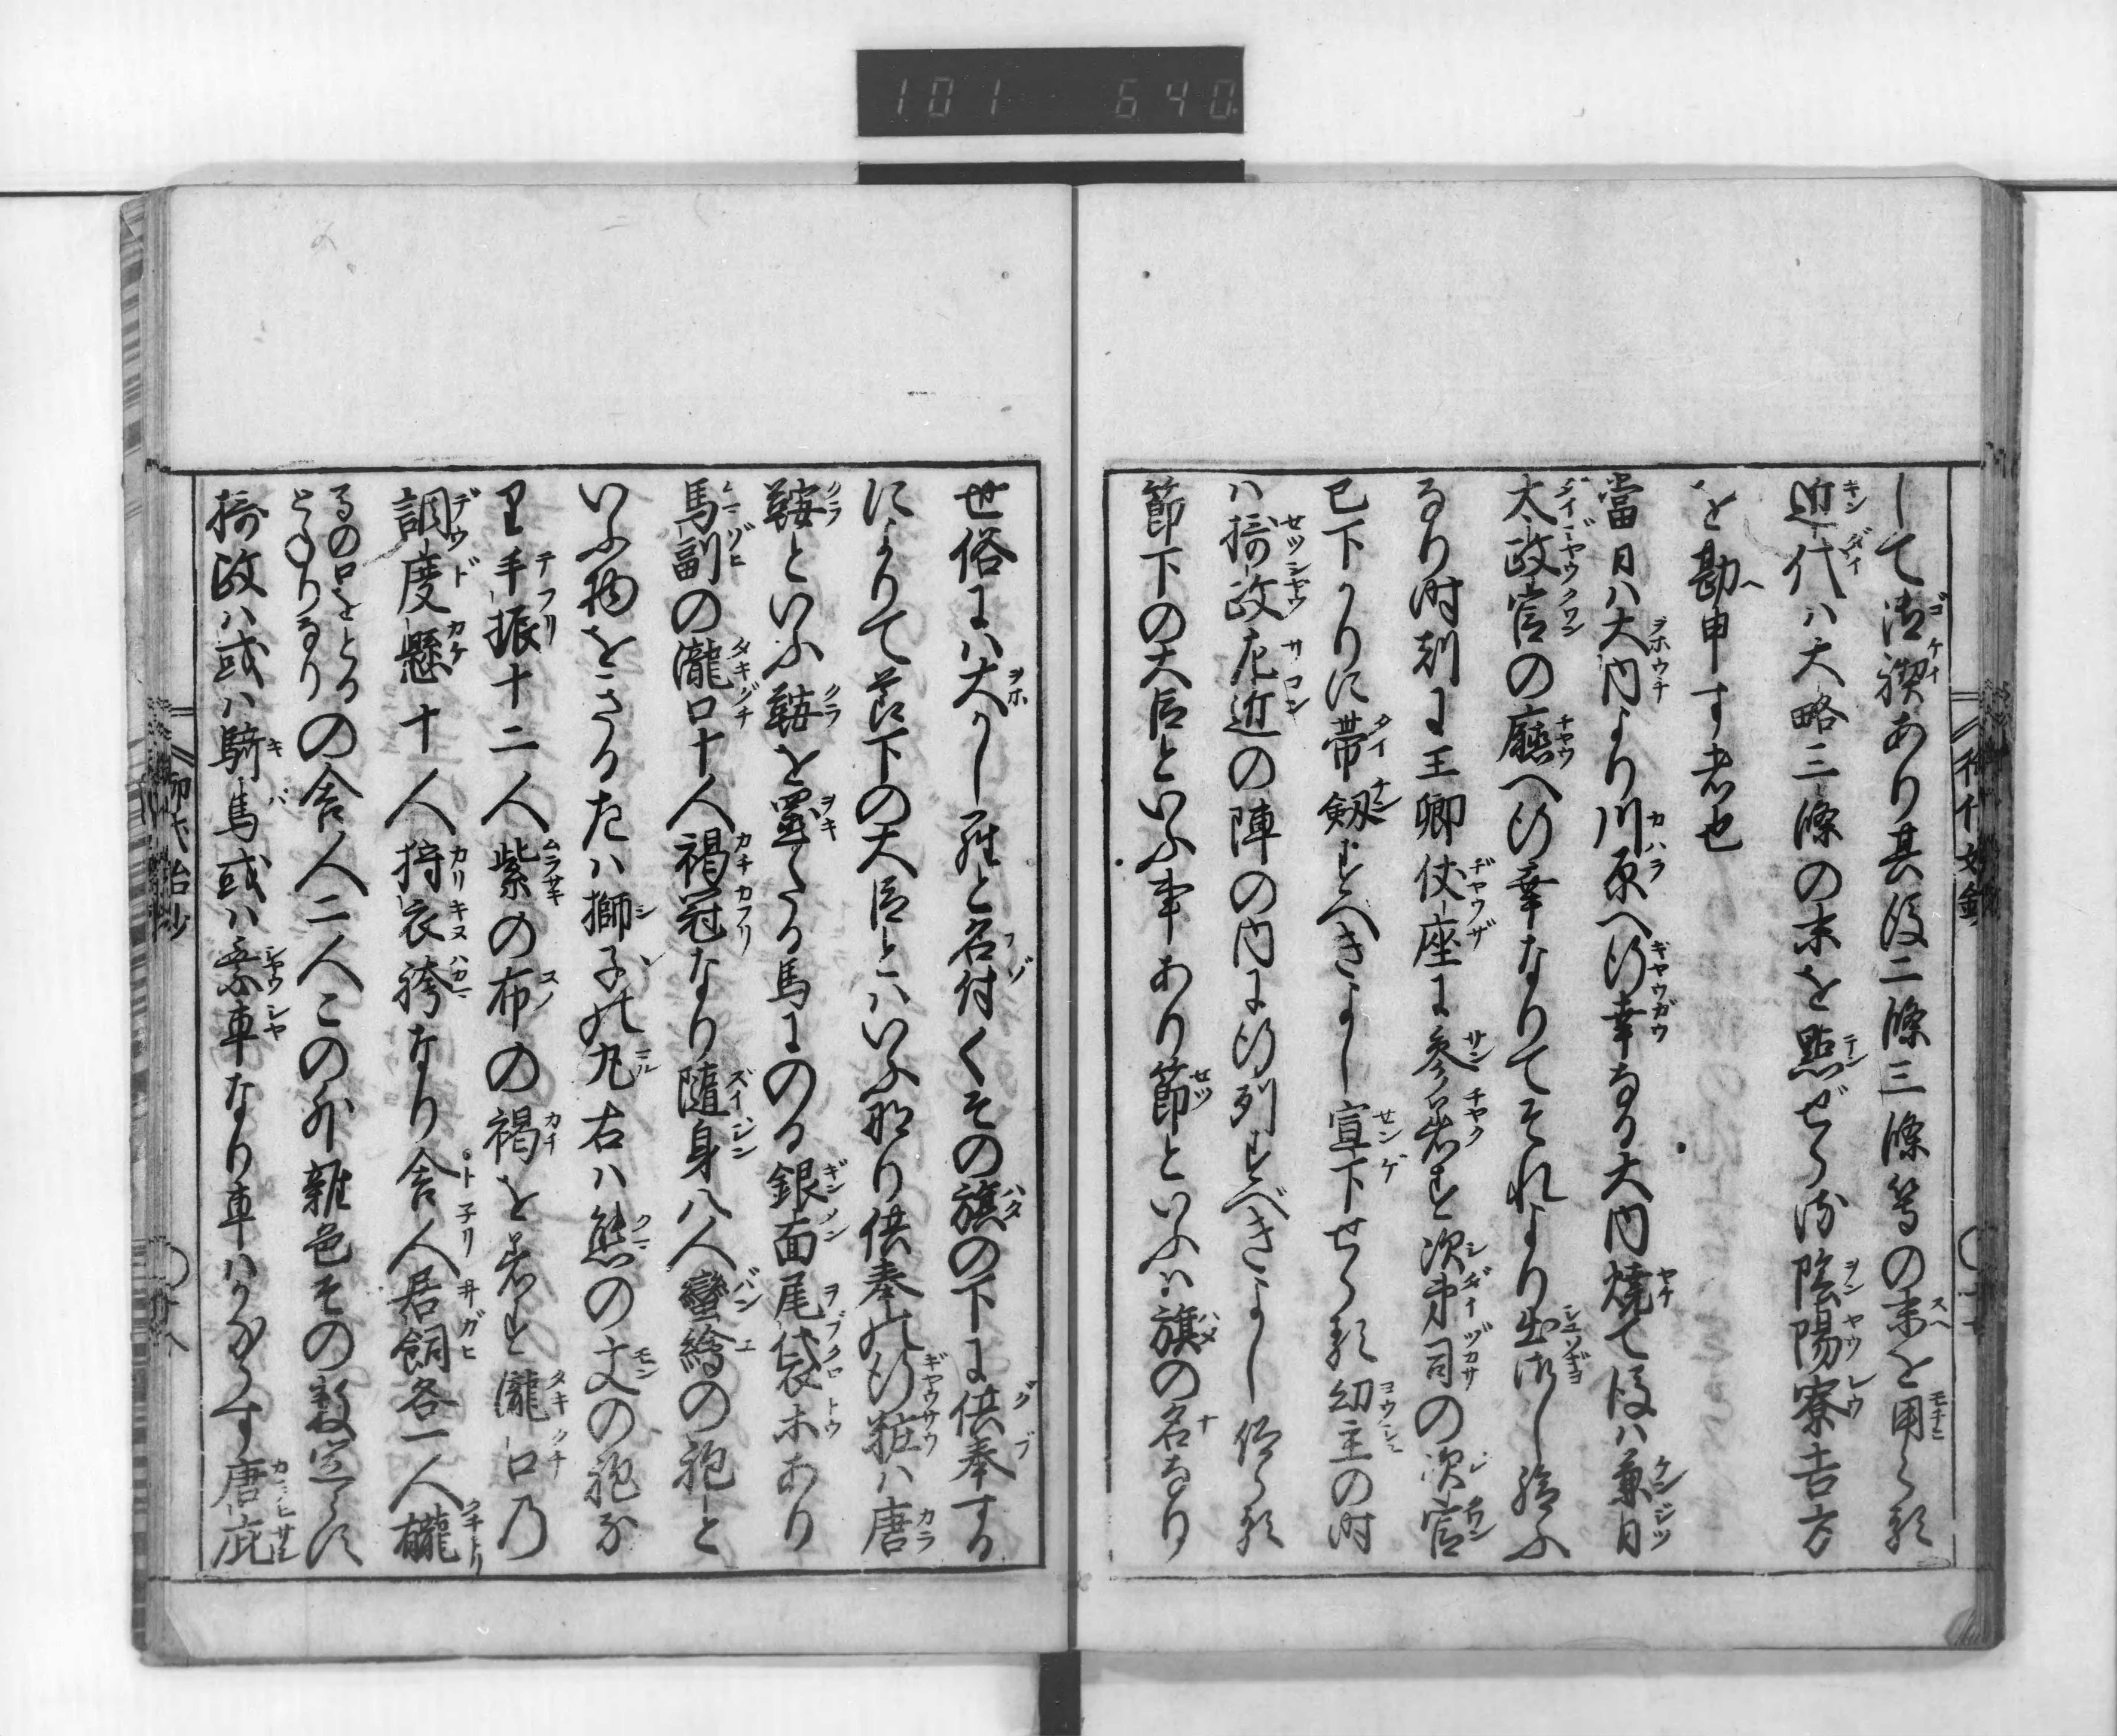 して御禊あり其後二條三條等の末を用らる
近代ハ大略三條の末を點ぜらる陰陽寮吉方
を勘申す者也
當日ハ大内より川原へ行幸なる大内燒て後ハ兼日
太政官の廳へ行幸なりてそれより出御し給ふ
なり時刻に王卿仗座に參着す次第司の次官
已下かりに帶剱すへきよし宣下せらる幼主の時
ハ摂政左近の陣の内に行列すべきよし仰らる
節下の大臣といふ事あり節といふハ旗の名なり
世俗にハ大かしらと名付くその旗の下に供奉する
によりて節下の大臣とハいふ那り供奉の行粧ハ唐
鞍といふ鞍を置たる馬にのる銀面尾袋ホあり
馬副の瀧口十人褐冠なり隨身八人蠻繪の袍と
いふ物をきる左ハ獅子の丸右ハ熊の丈の袍な
り手振十二人紫の布の褐を着す瀧口乃
調度懸十人狩衣袴なり舎人居飼各一人龓
馬の口をとる
とねりなり
の舎人二人この外雜色その数定らす
摂政ハ或ハ騎馬或ハ乗車なり車ハかならす唐庇
101 640